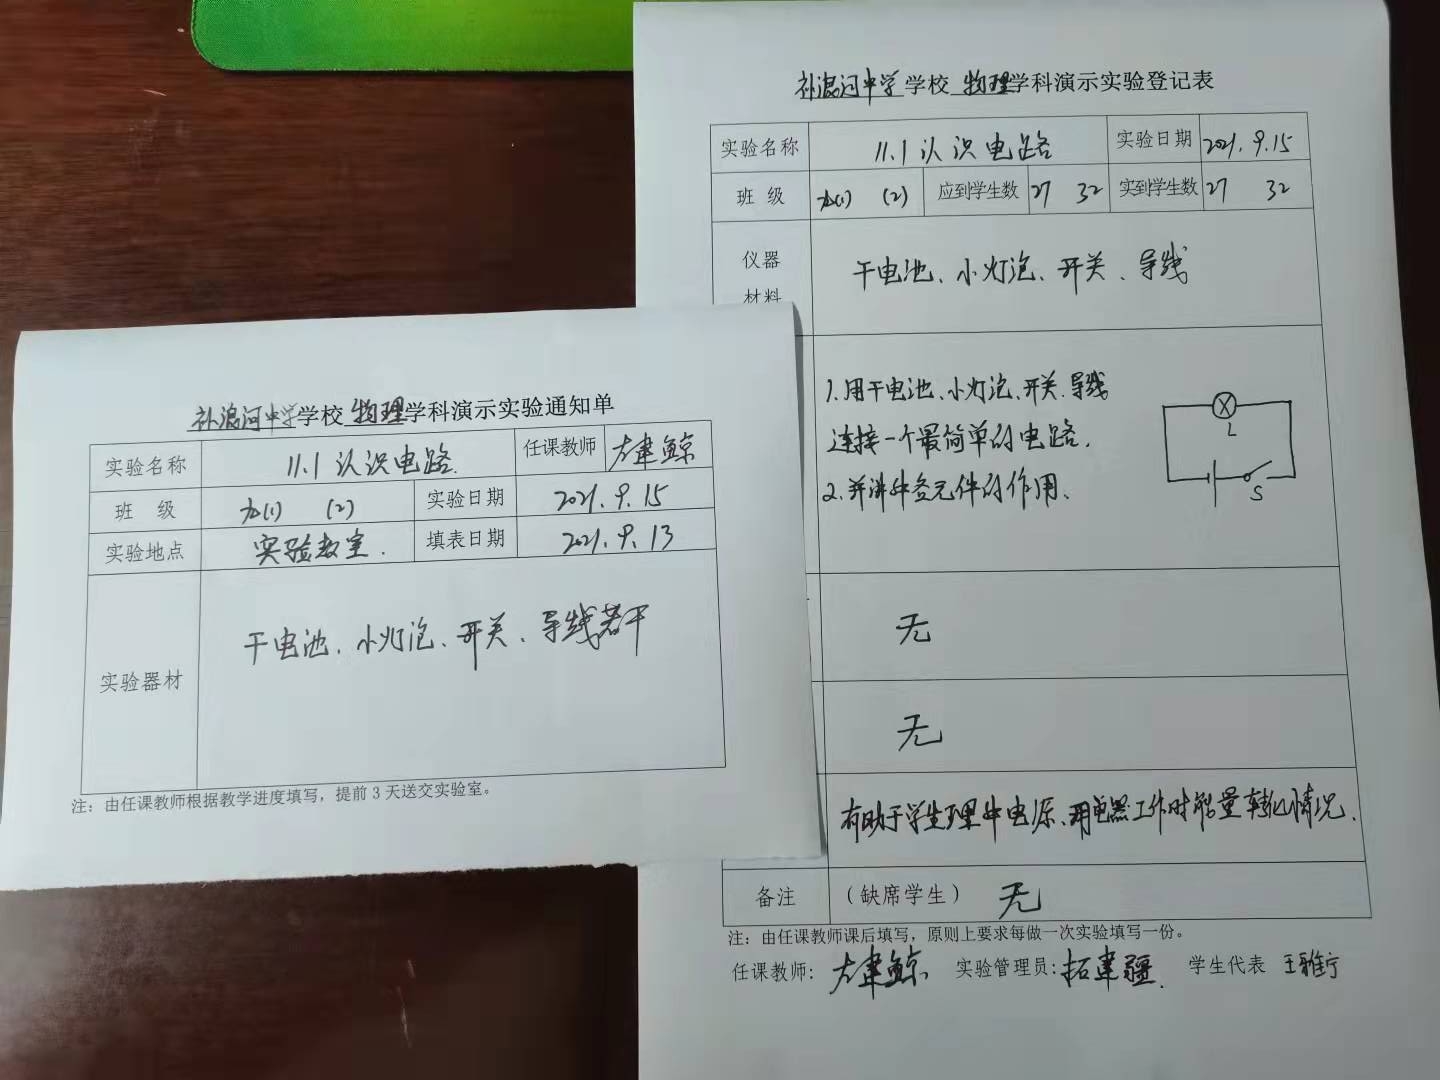 补浪河中学学校 物理学科演示实验通知单
实验名称 11.1 认识电路. 任课教师 左建鲸
班 级 九(1) (2) 实验日期 2021.9.15
实验地点 实验教室. 填表日期 2021.9.13
实验器材 干电池、小灯泡、开关、导线若干
注：由任课教师根据教学进度填写，提前 3 天送交实验室。
补浪河中学学校 物理学科演示实验登记表
实验名称 11.1 认识电路 实验日期 2021.9.15
班 级 九(1) (2) 应到学生数 27 32 实到学生数 27 32
仪器
材料
干电池、小灯泡、开关、导线
1.用干电池、小灯泡、开关.导线
连接一个最简单的电路.
2.并讲中各元件的作用、
L
S
无
无
有助于学生理中电源、用电器工作时能量转化情况.
备注 （缺席学生） 无
注：由任课教师课后填写，原则上要求每做一次实验填写一份。
任课教师: 左建鲸 实验管理员: 拓建疆. 学生代表 王雅宁